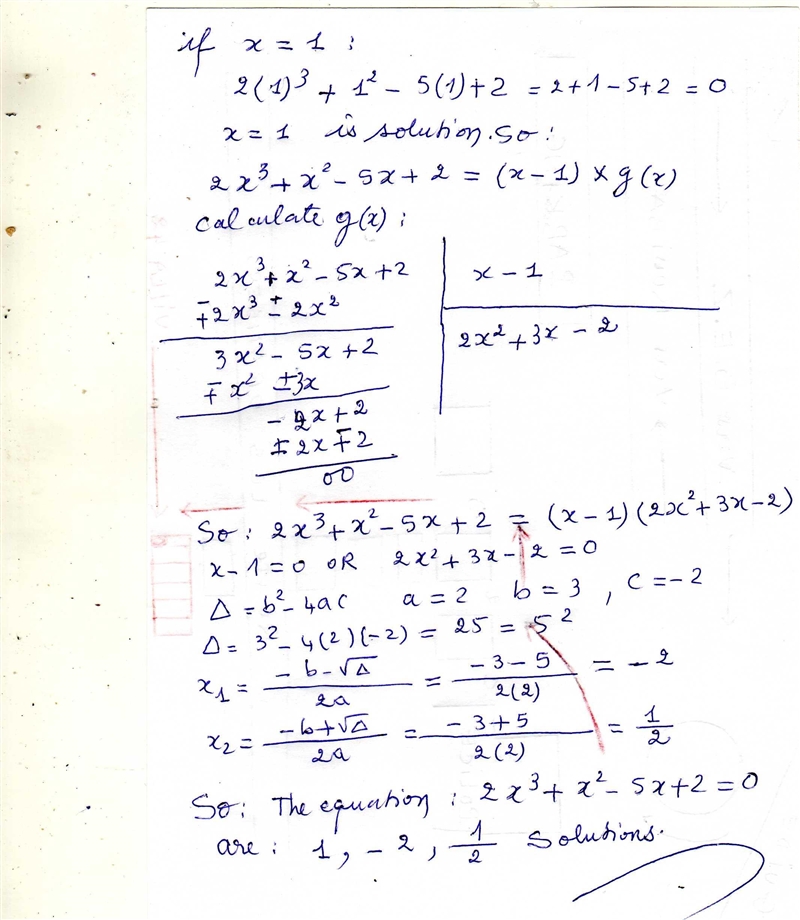 if x = 1 :
2(1)³ + 1² - 5(1) + 2 = 2+1-5+2 = 0
x = 1 is solution. So:
2x³ + x² - 5x + 2 = (x-1) × g(x)
calculate g(x) :
2x³ + x² - 5x + 2 | x - 1
∓2x³ ± 2x² | 2x² + 3x - 2
3x² - 5x + 2
∓x² ±3x
- 2x + 2
± 2x ∓ 2
00
So: 2x³ + x² - 5x + 2 = (x-1)(2x² + 3x - 2)
x - 1 = 0 OR 2x² + 3x - 2 = 0
Δ = b² - 4ac a = 2 b = 3 , c = -2
Δ = 3² - 4(2)(-2) = 25 = 5²
x₁ = (-b - √Δ)/2a = (-3 - 5)/2(2) = -2
x₂ = (-b + √Δ)/2a = (-3 + 5)/2(2) = 1/2
So: The equation : 2x³ + x² - 5x + 2 = 0
are : 1, -2, 1/2 solutions.